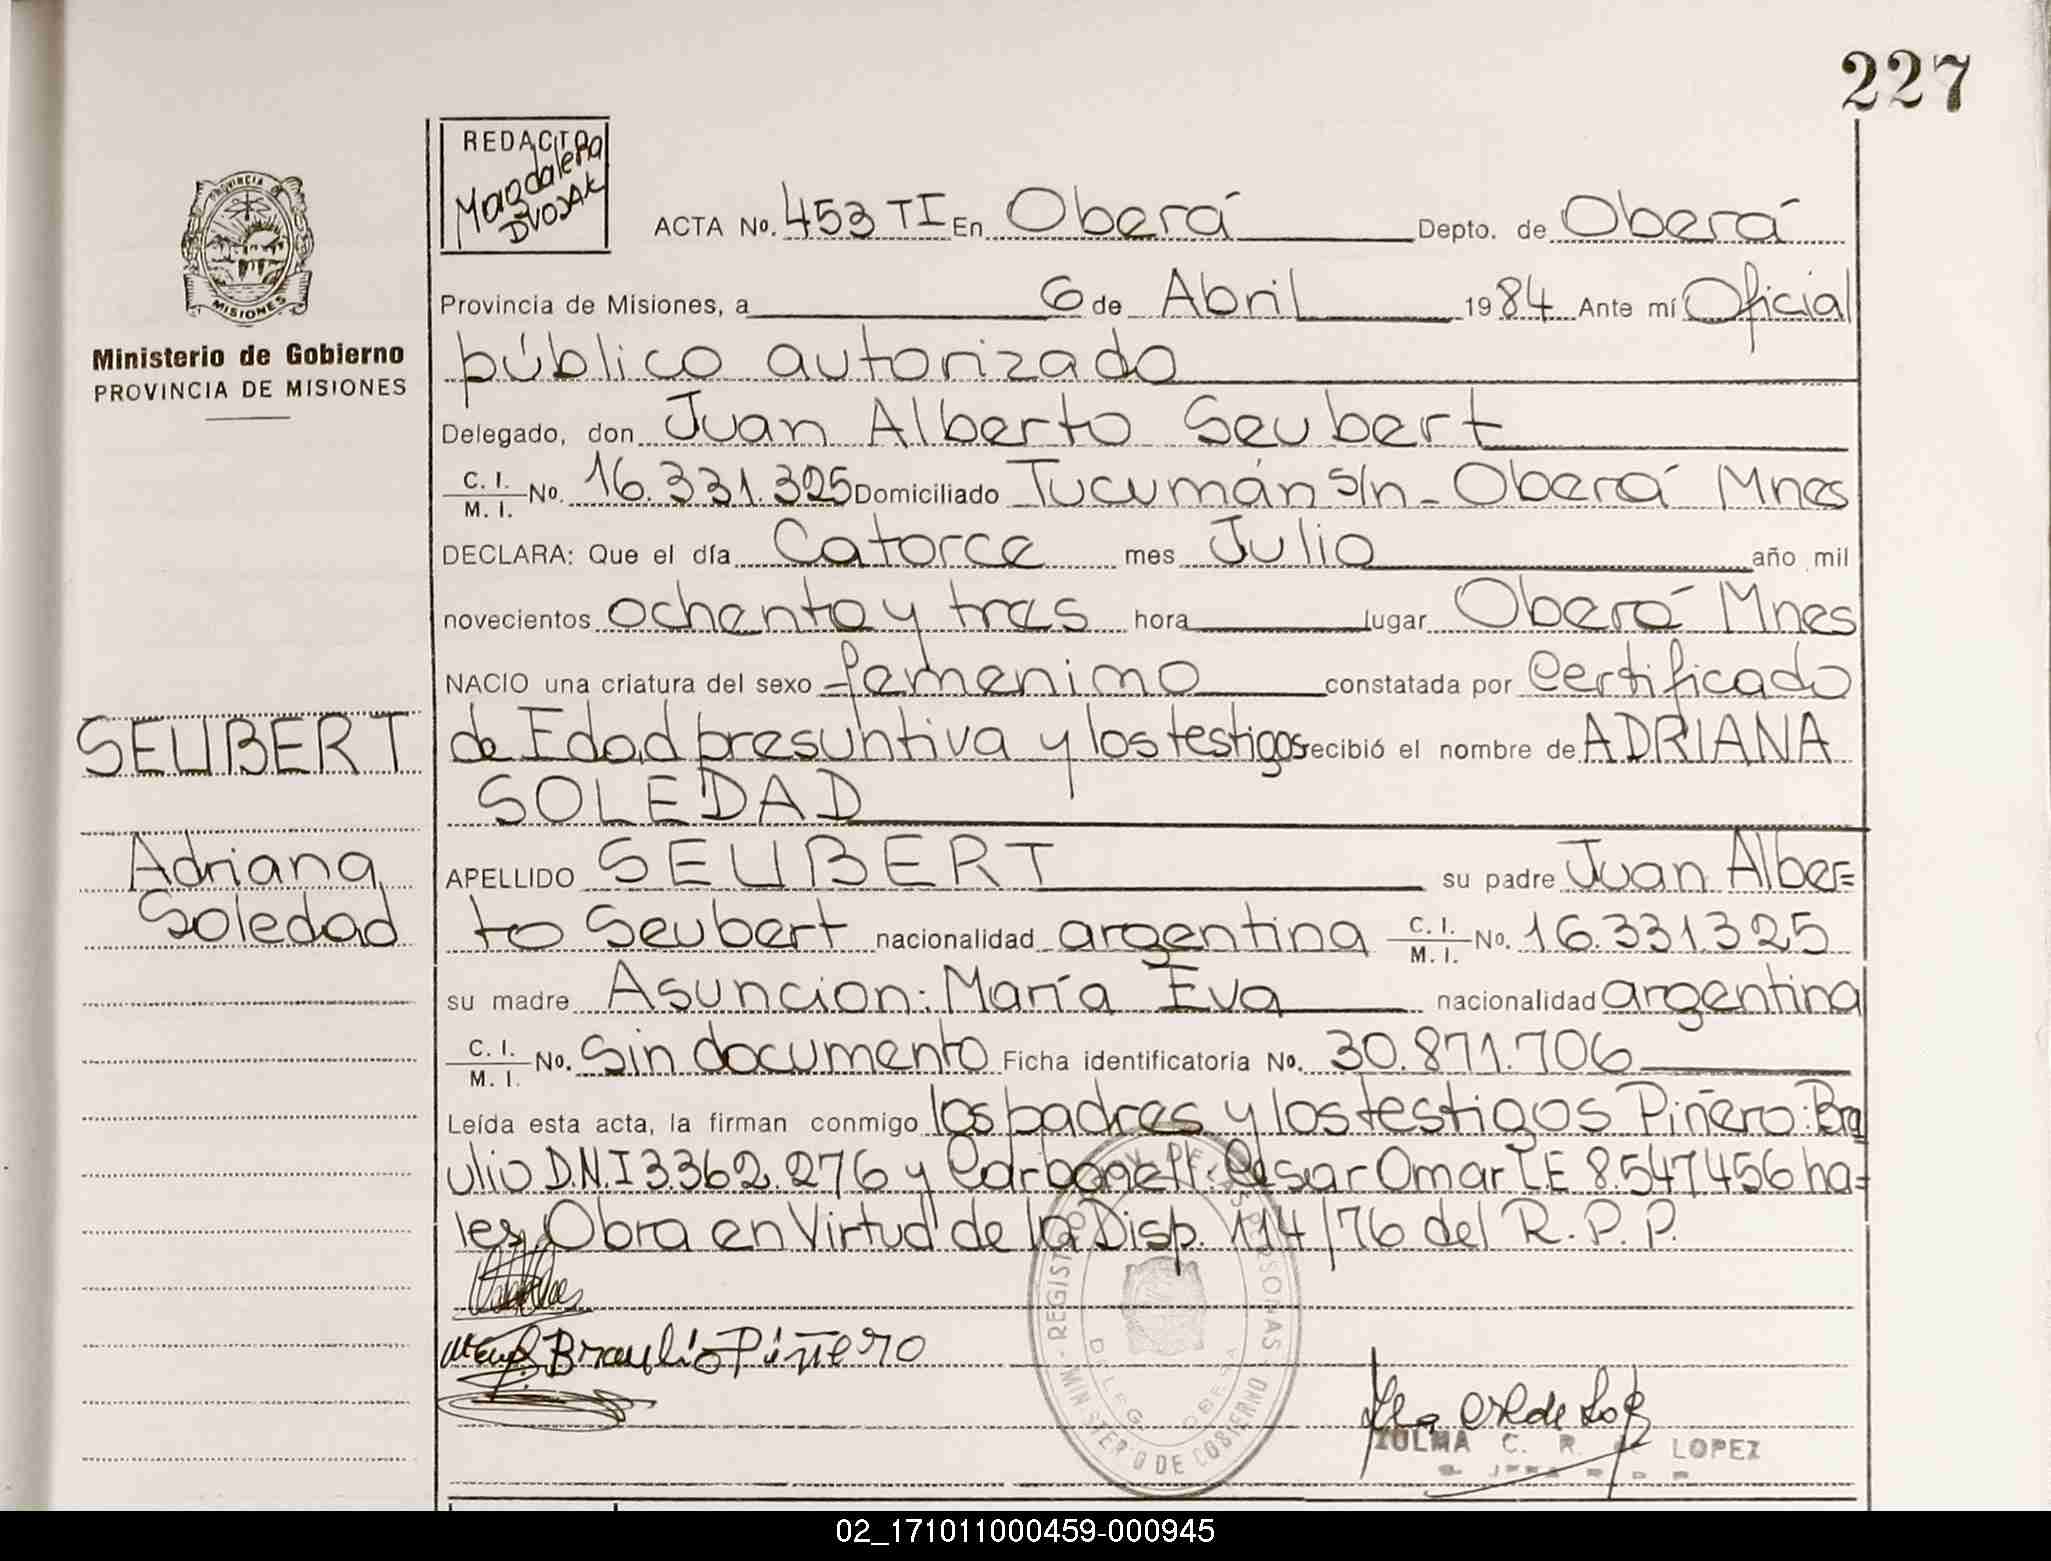 227
REDACTO
Magdalena
DVOJAK
PROVINCIA DE
MISIONES
Ministerio de Gobierno
PROVINCIA DE MISIONES
ACTA No. 453 TI En Oberá Depto. de Oberá
Provincia de Misiones, a 6 de Abril 1984 Ante mí Oficial
público autorizado
Delegado, don Juan Alberto Seubert
C. I. / M. I. No. 16.331.325 Domiciliado Tucumán s/n - Oberá Mnes
DECLARA: Que el día Catorce mes Julio año mil
novecientos ochenta y tres hora lugar Oberá Mnes
NACIO una criatura del sexo femenino constatada por Certificado
SEUBERT
de Edad presuntiva y los testigos recibió el nombre de ADRIANA
SOLEDAD
Adriana
Soledad
APELLIDO SEUBERT su padre Juan Alber=
to Seubert nacionalidad argentina C. I. / M. I. No. 16.331.325
su madre Asuncion: María Eva nacionalidad argentina
C. I. / M. I. No. Sin documento Ficha identificatoria No. 30.871.706
Leída esta acta, la firman conmigo los padres y los testigos Piñero: Bra
ulio D.N.I 3.362.276 y Carbonell: Cesar Omar L.E 8.547.456 ha=
les Obra en Virtud de la Disp. 114/76 del R.P.P.
Braulio Piñero
REGISTRO PROV. DE LAS PERSONAS
MINISTERIO DE GOBIERNO
DELEG. OBERA
ZULMA C. R. de LOPEZ
02_171011000459-000945